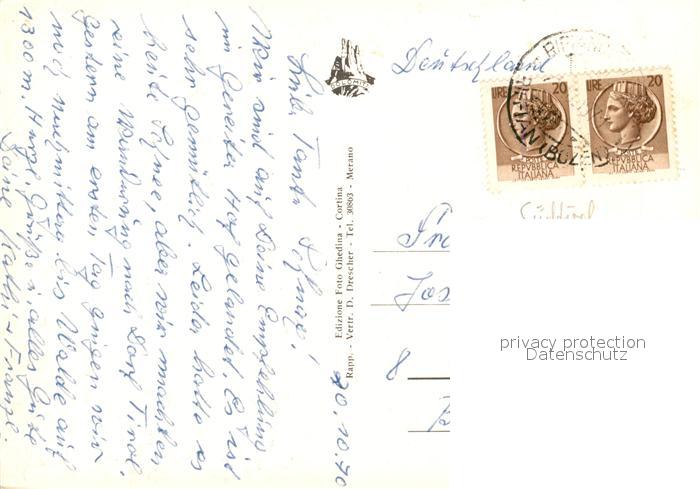 20.10.70
Liebe Tante
Wir sind auf Deine Empfehlung
im Gereiter Hof gelandet. Es ist
sehr gemütlich. Leider hatte es
heute Schnee, aber wir machten
eine Wanderung nach Dorf Tirol.
Gestern am ersten Tag gingen wir
nach bis Walde auf
1300 m. Herzl. Grüße u. alles Gute
Deine
Edizione Foto Ghedina - Cortina
Rapp. - Vertr. D. Drescher - Tel. 30863 - Merano
DOLOMITI
Deutschland
LIRE 20
POSTE
REPVBBLICA
ITALIANA
LIRE 20
POSTE
REPVBBLICA
ITALIANA
(BOLZANO)
Südtirol
8
privacy protection
Datenschutz